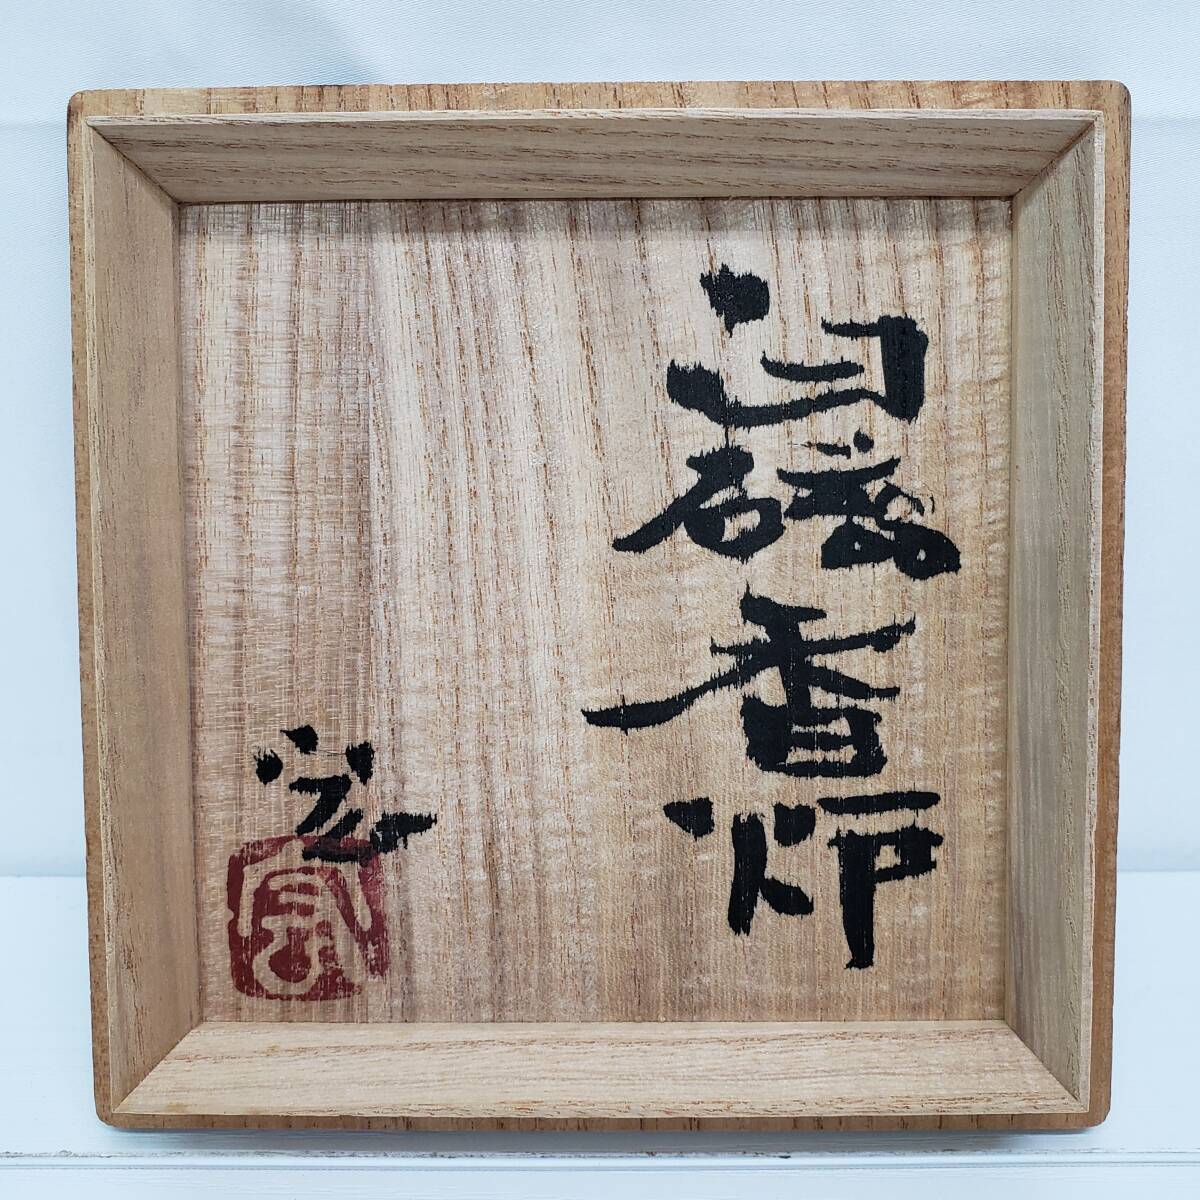 白磁香炉
宏